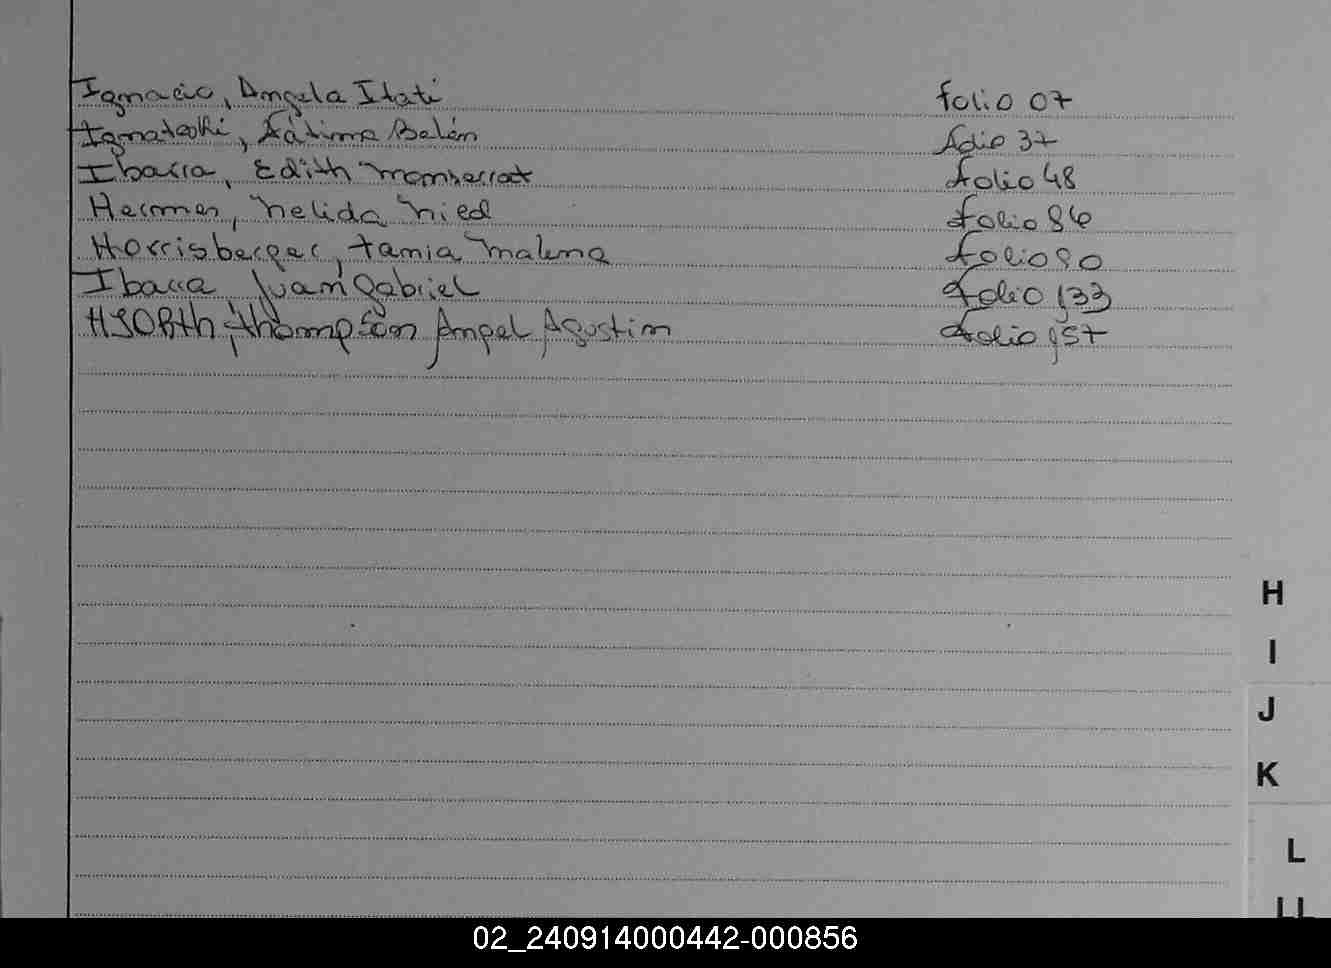 Ignacio, Angela Itati folio 07
Ignatoski, Fátima Belén folio 37
Ibarra, Edith Monserrat folio 48
Hermer, Nelida folio 86
Horrisberger, tamia Malena folio 90
Ibarra Juan Gabriel folio 133
HJORth, thompson Angel Agustin folio 157
H
I
J
K
L
LL
02_240914000442-000856